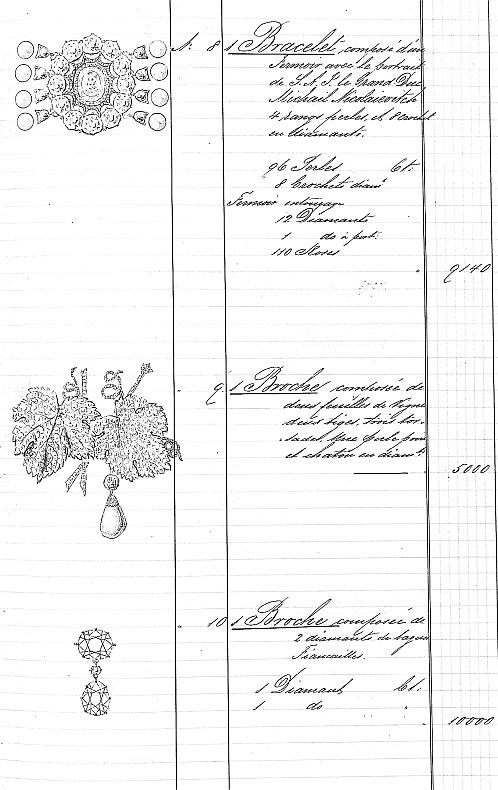 N: 8 1 Bracelet composé d'un
fermoir avec le portrait
de S. A. I. le Grand Duc
Michail Nicolaiewitch
4 rangs perles, et 8 crochets
en diamants.
96 Perles Ct:
8 Crochets diam
Fermoir entourage
12 Diamants
1 do à port.
110 Roses
9140
" 9. 1 Broche composée de
deux feuilles de Vigne
deux tiges, trois tor-
sades, une perle poire
et chaton en diamts
5000
" 10 1 Broche composée de
2 diamants de bagues
Fiancailles.
1 Diamant Ct:
1 do "
10000